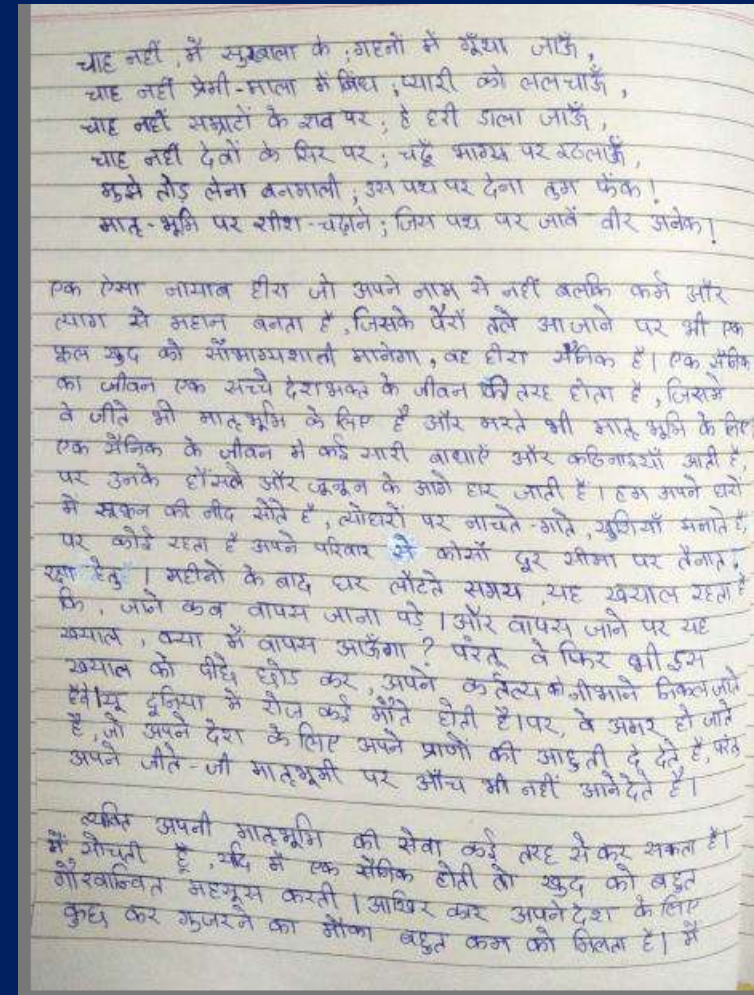 चाह नहीं, मैं सुरबाला के ; गहनों में गूँथा जाऊँ,
चाह नहीं प्रेमी-माला में बिंध ; प्यारी को ललचाऊँ,
चाह नहीं सम्राटों के शव पर ; हे हरी डाला जाऊँ,
चाह नहीं देवों के सिर पर ; चढूँ भाग्य पर इठलाऊँ,
मुझे तोड़ लेना बनमाली ; उस पथ पर देना तुम फेंक !
मातृ-भूमि पर शीश-चढ़ाने ; जिस पथ पर जावें वीर अनेक !
एक ऐसा नायाब हीरा जो अपने नाम से नहीं बलकि कर्म और
त्याग से महान बनता है, जिसके पैरों तले आ जाने पर भी एक
फूल खुद को सौभाग्यशाली मानेगा, वह हीरा सैनिक है। एक सैनिक
का जीवन एक सच्चे देशभक्त के जीवन की तरह होता है, जिसमे
वे जीते भी मातृभूमि के लिए है और मरते भी मातृ भूमि के लिए
एक सैनिक के जीवन मे कई सारी बाधाएँ और कठिनाइयाँ आती है,
पर उनके हौंसले और जूनून के आगे हार जाती है। हम अपने घरों
में सूकून की नीद सोते है, त्योहारों पर नाचते-गाते, खुशियाँ मनाते है,
पर कोई रहता है अपने परिवार से कोसों दूर सीमा पर तैनात,
रक्षा हेतु। महीनो के बाद घर लौटते समय यह खयाल रहता है
कि, जाने कब वापस जाना पड़े। और वापस जाने पर यह
खयाल, क्या मैं वापस आऊँगा ? परंतू वे फिर भी इस
खयाल को पीछे छोड कर, अपने कर्तव्य को नीभाने निकल जाते
है। यू दूनिया मे रोज कई मौते होती है। पर, वे अमर हो जाते
है, जो अपने देश के लिए अपने प्राणो की आहुती दे देते है, परंतू
अपने जीते-जी मातृभूमी पर आँच भी नहीं आने देते है।
व्यक्ति अपनी मातृभूमि की सेवा कई तरह से कर सकता है।
मैं सोचती हूँ, यदि मैं एक सैनिक होती तो खुद को बहुत
गौरवान्वित महसूस करती। आखिर कार अपने देश के लिए
कुछ कर गुजरने का मौका बहुत कम को मिलता है। मैं